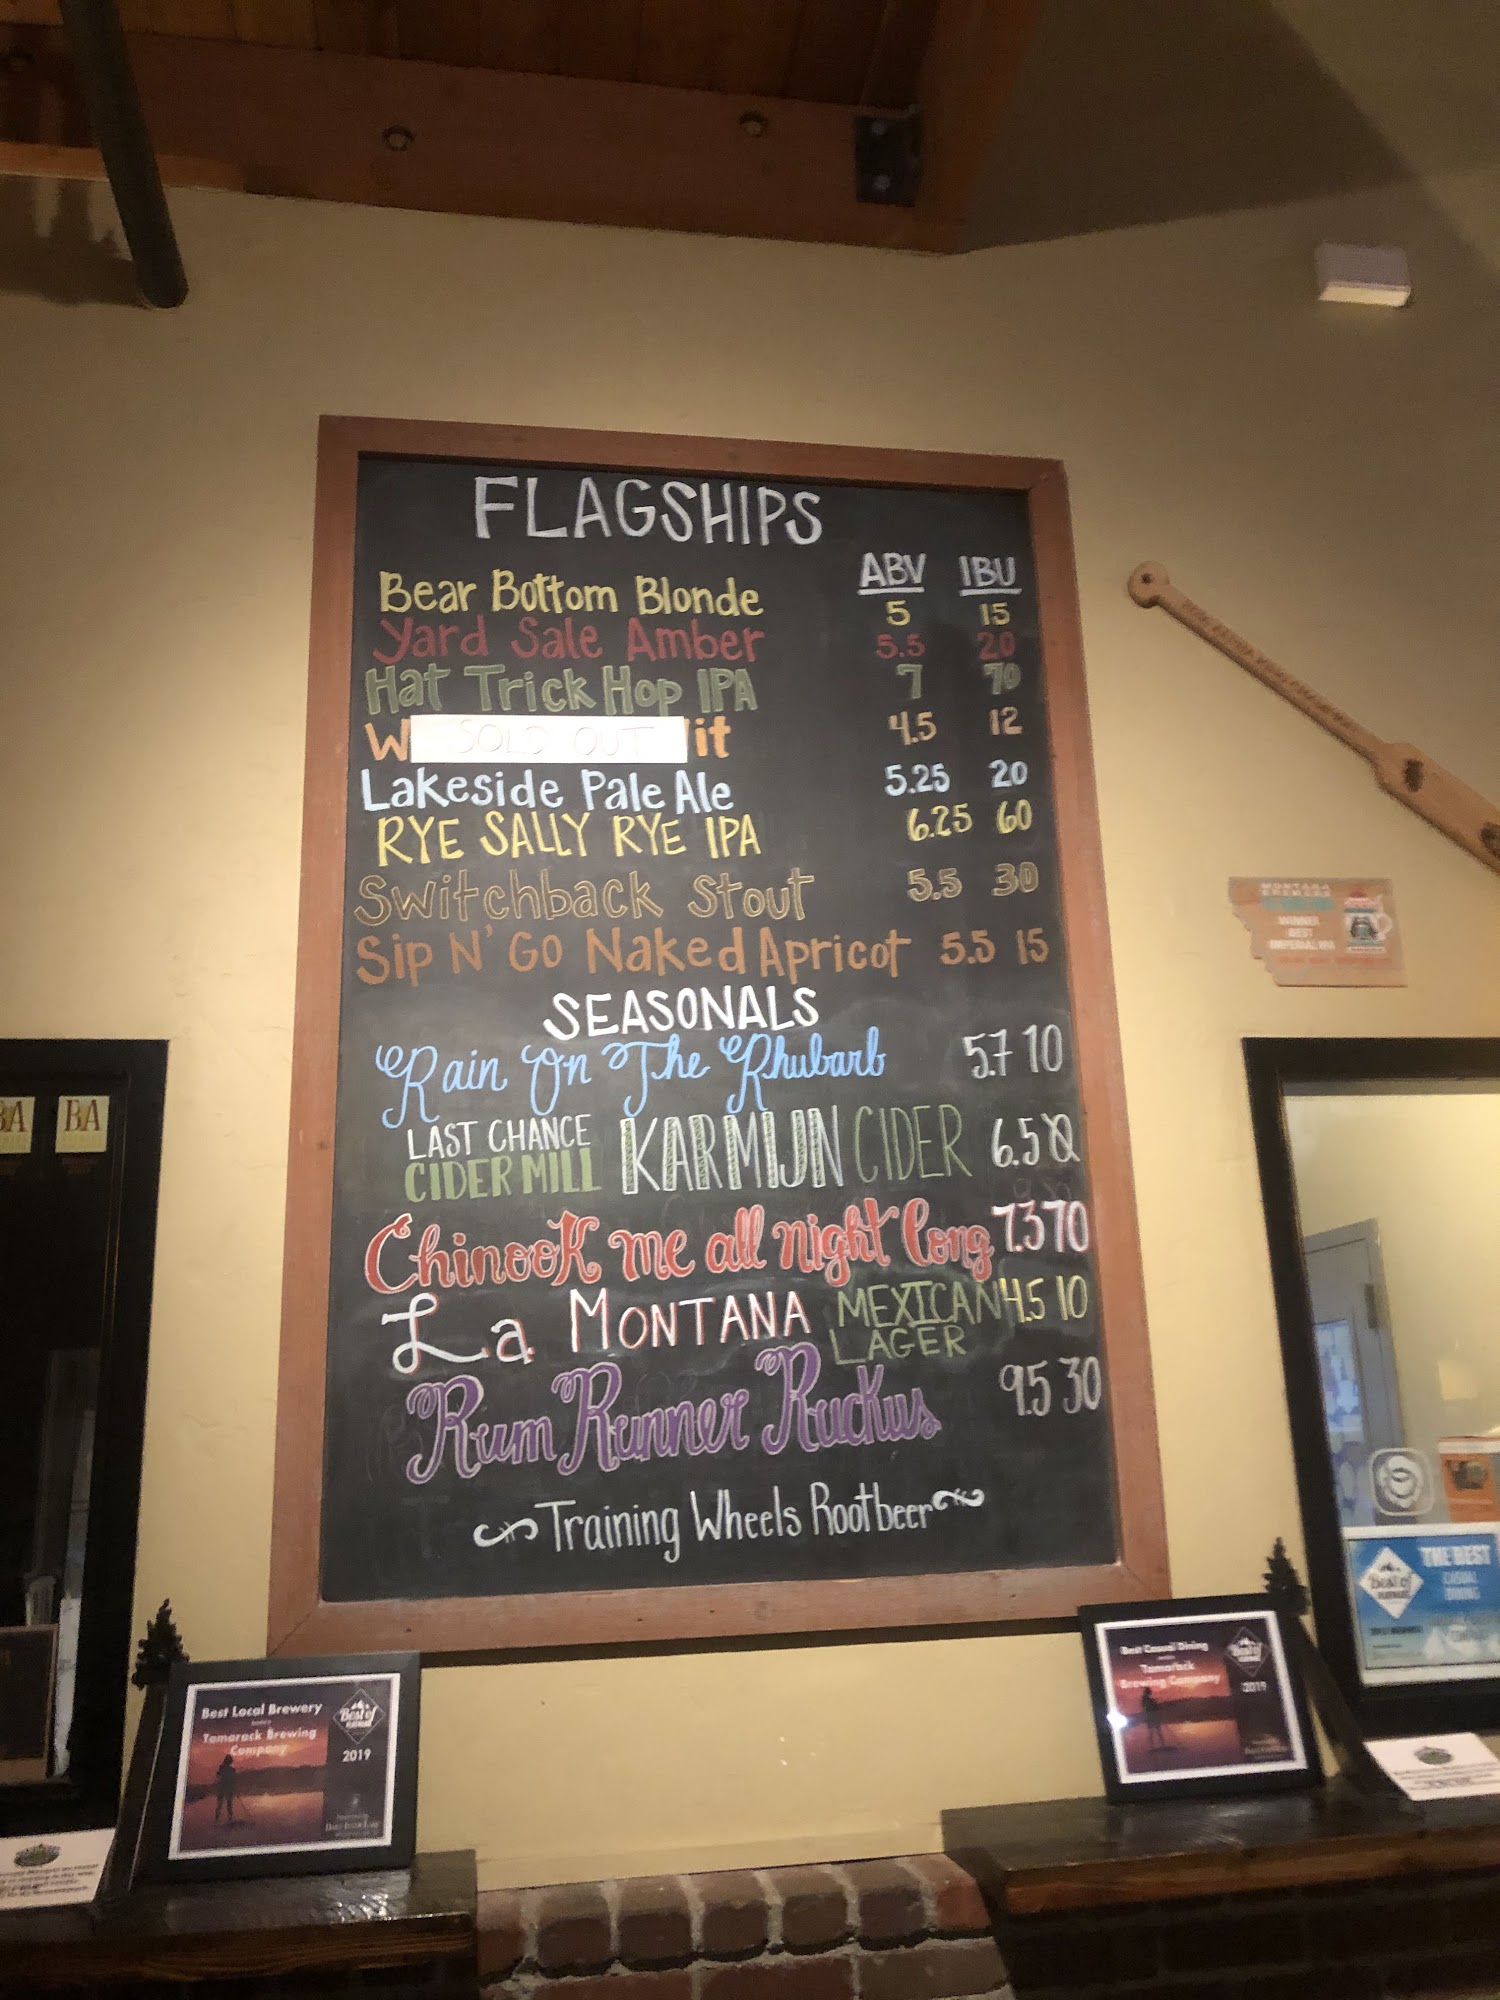 FLAGSHIPS
ABV IBU
Bear Bottom Blonde 5 15
Yard Sale Amber 5.5 20
Hat Trick Hop IPA 7 70
W SOLD OUT it 4.5 12
Lakeside Pale Ale 5.25 20
RYE SALLY RYE IPA 6.25 60
Switchback Stout 5.5 30
Sip N' Go Naked Apricot 5.5 15
SEASONALS
Rain On The Rhubarb 5.7 10
LAST CHANCE
CIDER MILL KARMIJN CIDER 6.5
Chinook me all night long 7.3 70
La MONTANA MEXICAN 4.5 10
LAGER
Rum Runner Ruckus 9.5 30
Training Wheels Rootbeer
MONTANA
BREWERS
WINNER
BEST
IMPERIAL IPA
BA
BA
THE BEST
CASUAL
DINING
Best of
Best Local Brewery
Tamarack Brewing
Company
Best of
2019
Best Casual Dining
Tamarack
Brewing Company
Best of
2019